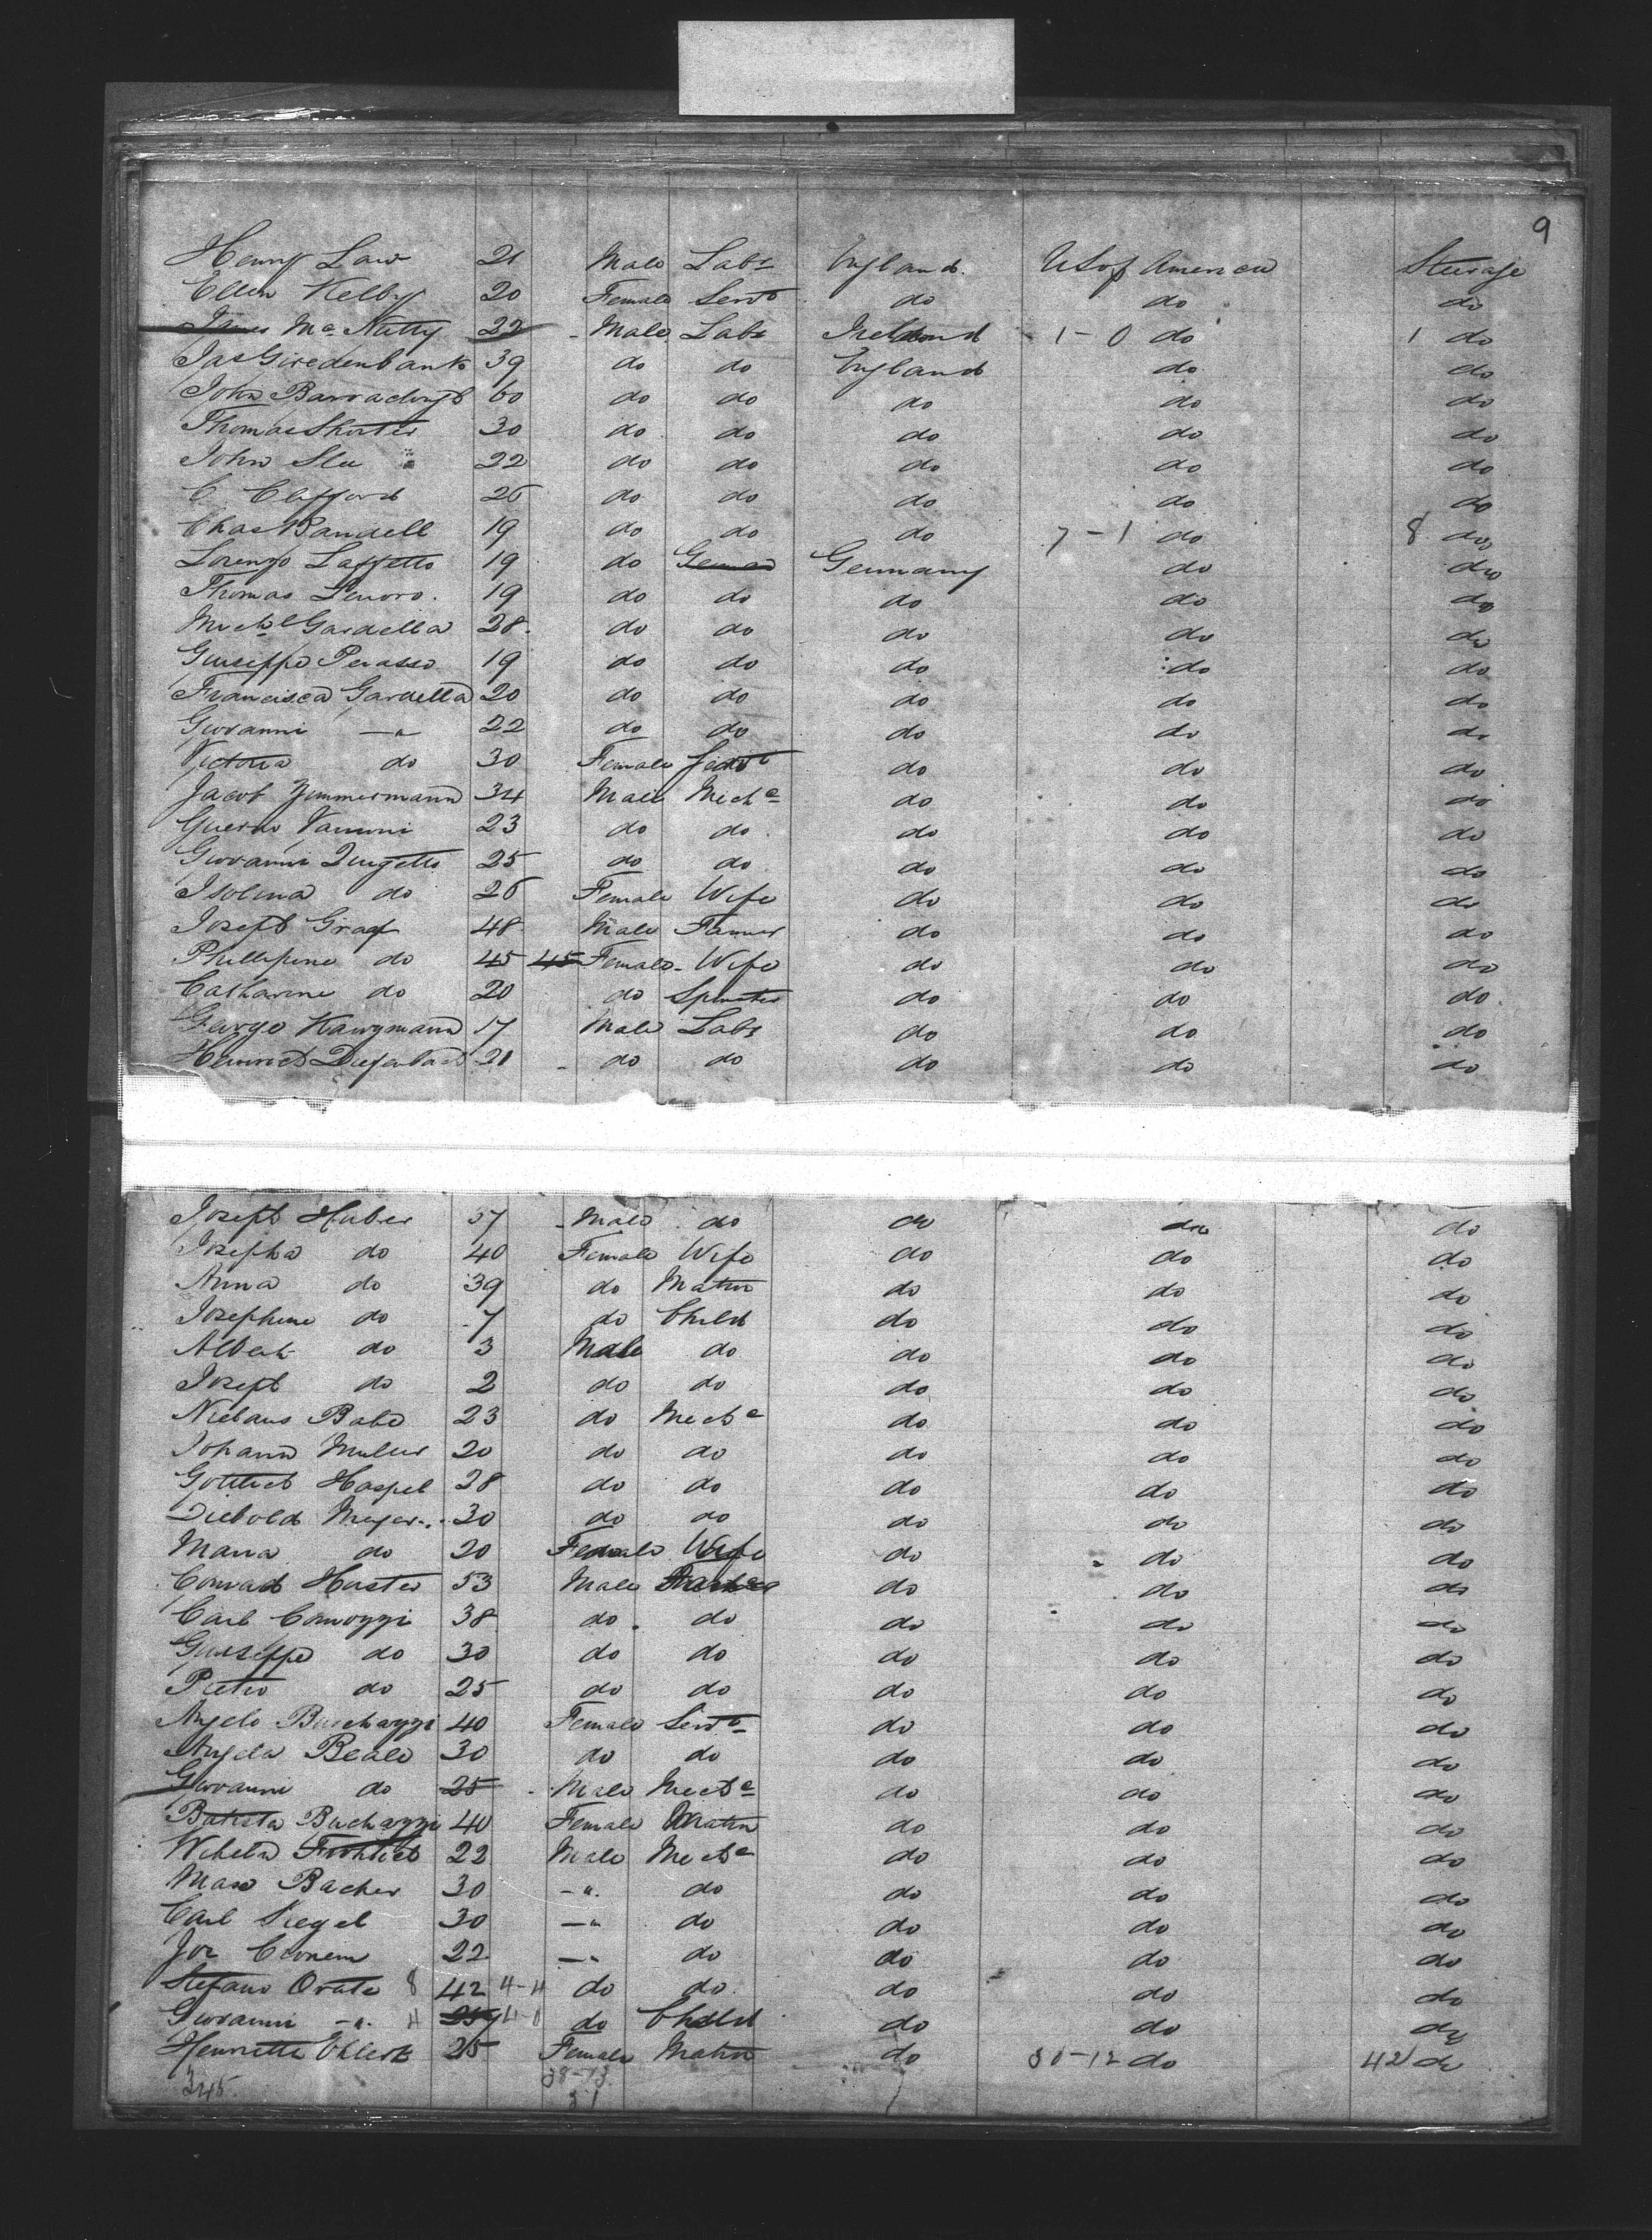 9
Henry Law 21 Male Labr England. U S of America Steerage
Ellen Kelby 20 Female Servt do do do
James McNatty 22 Male Labr Ireland 1-0 do 1 do
Jas Giredenbank 39 do do England do do
John Barraclough 60 do do do do do
Thomas Shorter 30 do do do do do
John Slee 22 do do do do do
C. Clifford 26 do do do do do
Chas Bandell 19 do do do 7-1 do 8 do
Lorenzo Laffetto 19 do Germany do do
Thomas 19 do do do do do
Michl Gardella 28 do do do do do
Giuseppe Perasso 19 do do do do do
Francisca Gardella 20 do do do do do
Giovanni —"— 22 do do do do do
Victoria do 30 Female Servt do do do
Jacob Zimmermann 34 Male Mechc do do do
Vanoni 23 do do do do do
Giovanni 25 do do do do do
Isolina do 26 Female Wife do do do
Joseph Graf 48 Male Farmer do do do
Phillipine do 45 45 Female Wife do do do
Catharine do 20 do Spinster do do do
George 17 Male Labr do do do
21 do do do do do
Joseph Huber 37 Male do do do do
Josepha do 40 Female Wife do do do
Anna do 39 do Matrn do do do
Josephine do 7 do Child do do do
Albert do 3 Male do do do do
Joseph do 2 do do do do do
Niclaus Babo 23 do Mechc do do do
Johann Muller 20 do do do do do
Gottlieb Haspel 28 do do do do do
Diebold Meyer 30 do do do do do
Maria do 20 Female Wife do do do
Conrad Huster 53 Male do do do
Carl Camozzi 38 do do do do do
Guiseppe do 30 do do do do do
Pietro do 25 do do do do do
Angelo 40 Female Servt do do do
Angela Beale 30 do do do do do
Giovanni do 25 Male Mechc do do do
Batista Buchazzi 40 Female Matrn do do do
Wilhelm Frohlich 22 Male Mechc do do do
Max Bacher 30 —"— do do do do
Carl Siegel 30 —"— do do do do
Jos 22 —"— do do do do
Stefano Orate 8 42 4-4 do do do do do
Giovanni —"— 4 4-0 do Child do do do
Henriette Ehlert 25 Female Matrn do 30-12 do 42 do
345. 38-13.
31